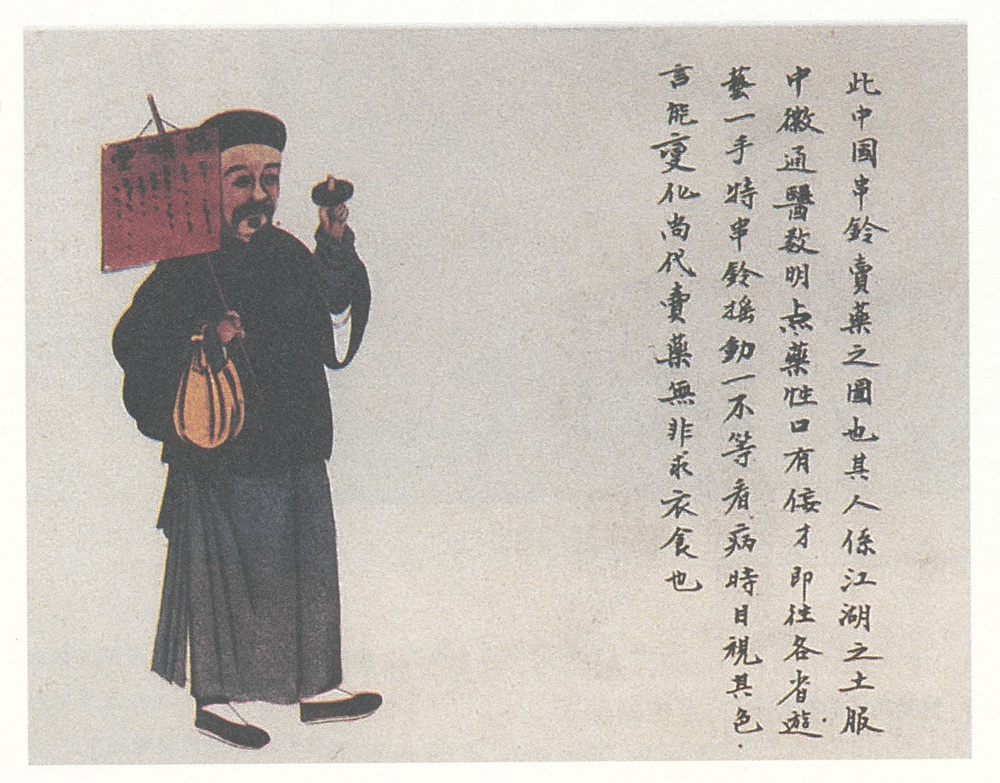 此中國串鈴賣藥之圖也其人係江湖之土服
中微通醫数明点藥性口有佞才即往各省遊
藝一手特串鈴摇動一不等看病時目視其色
言能變化尚代賣藥無非求衣食也